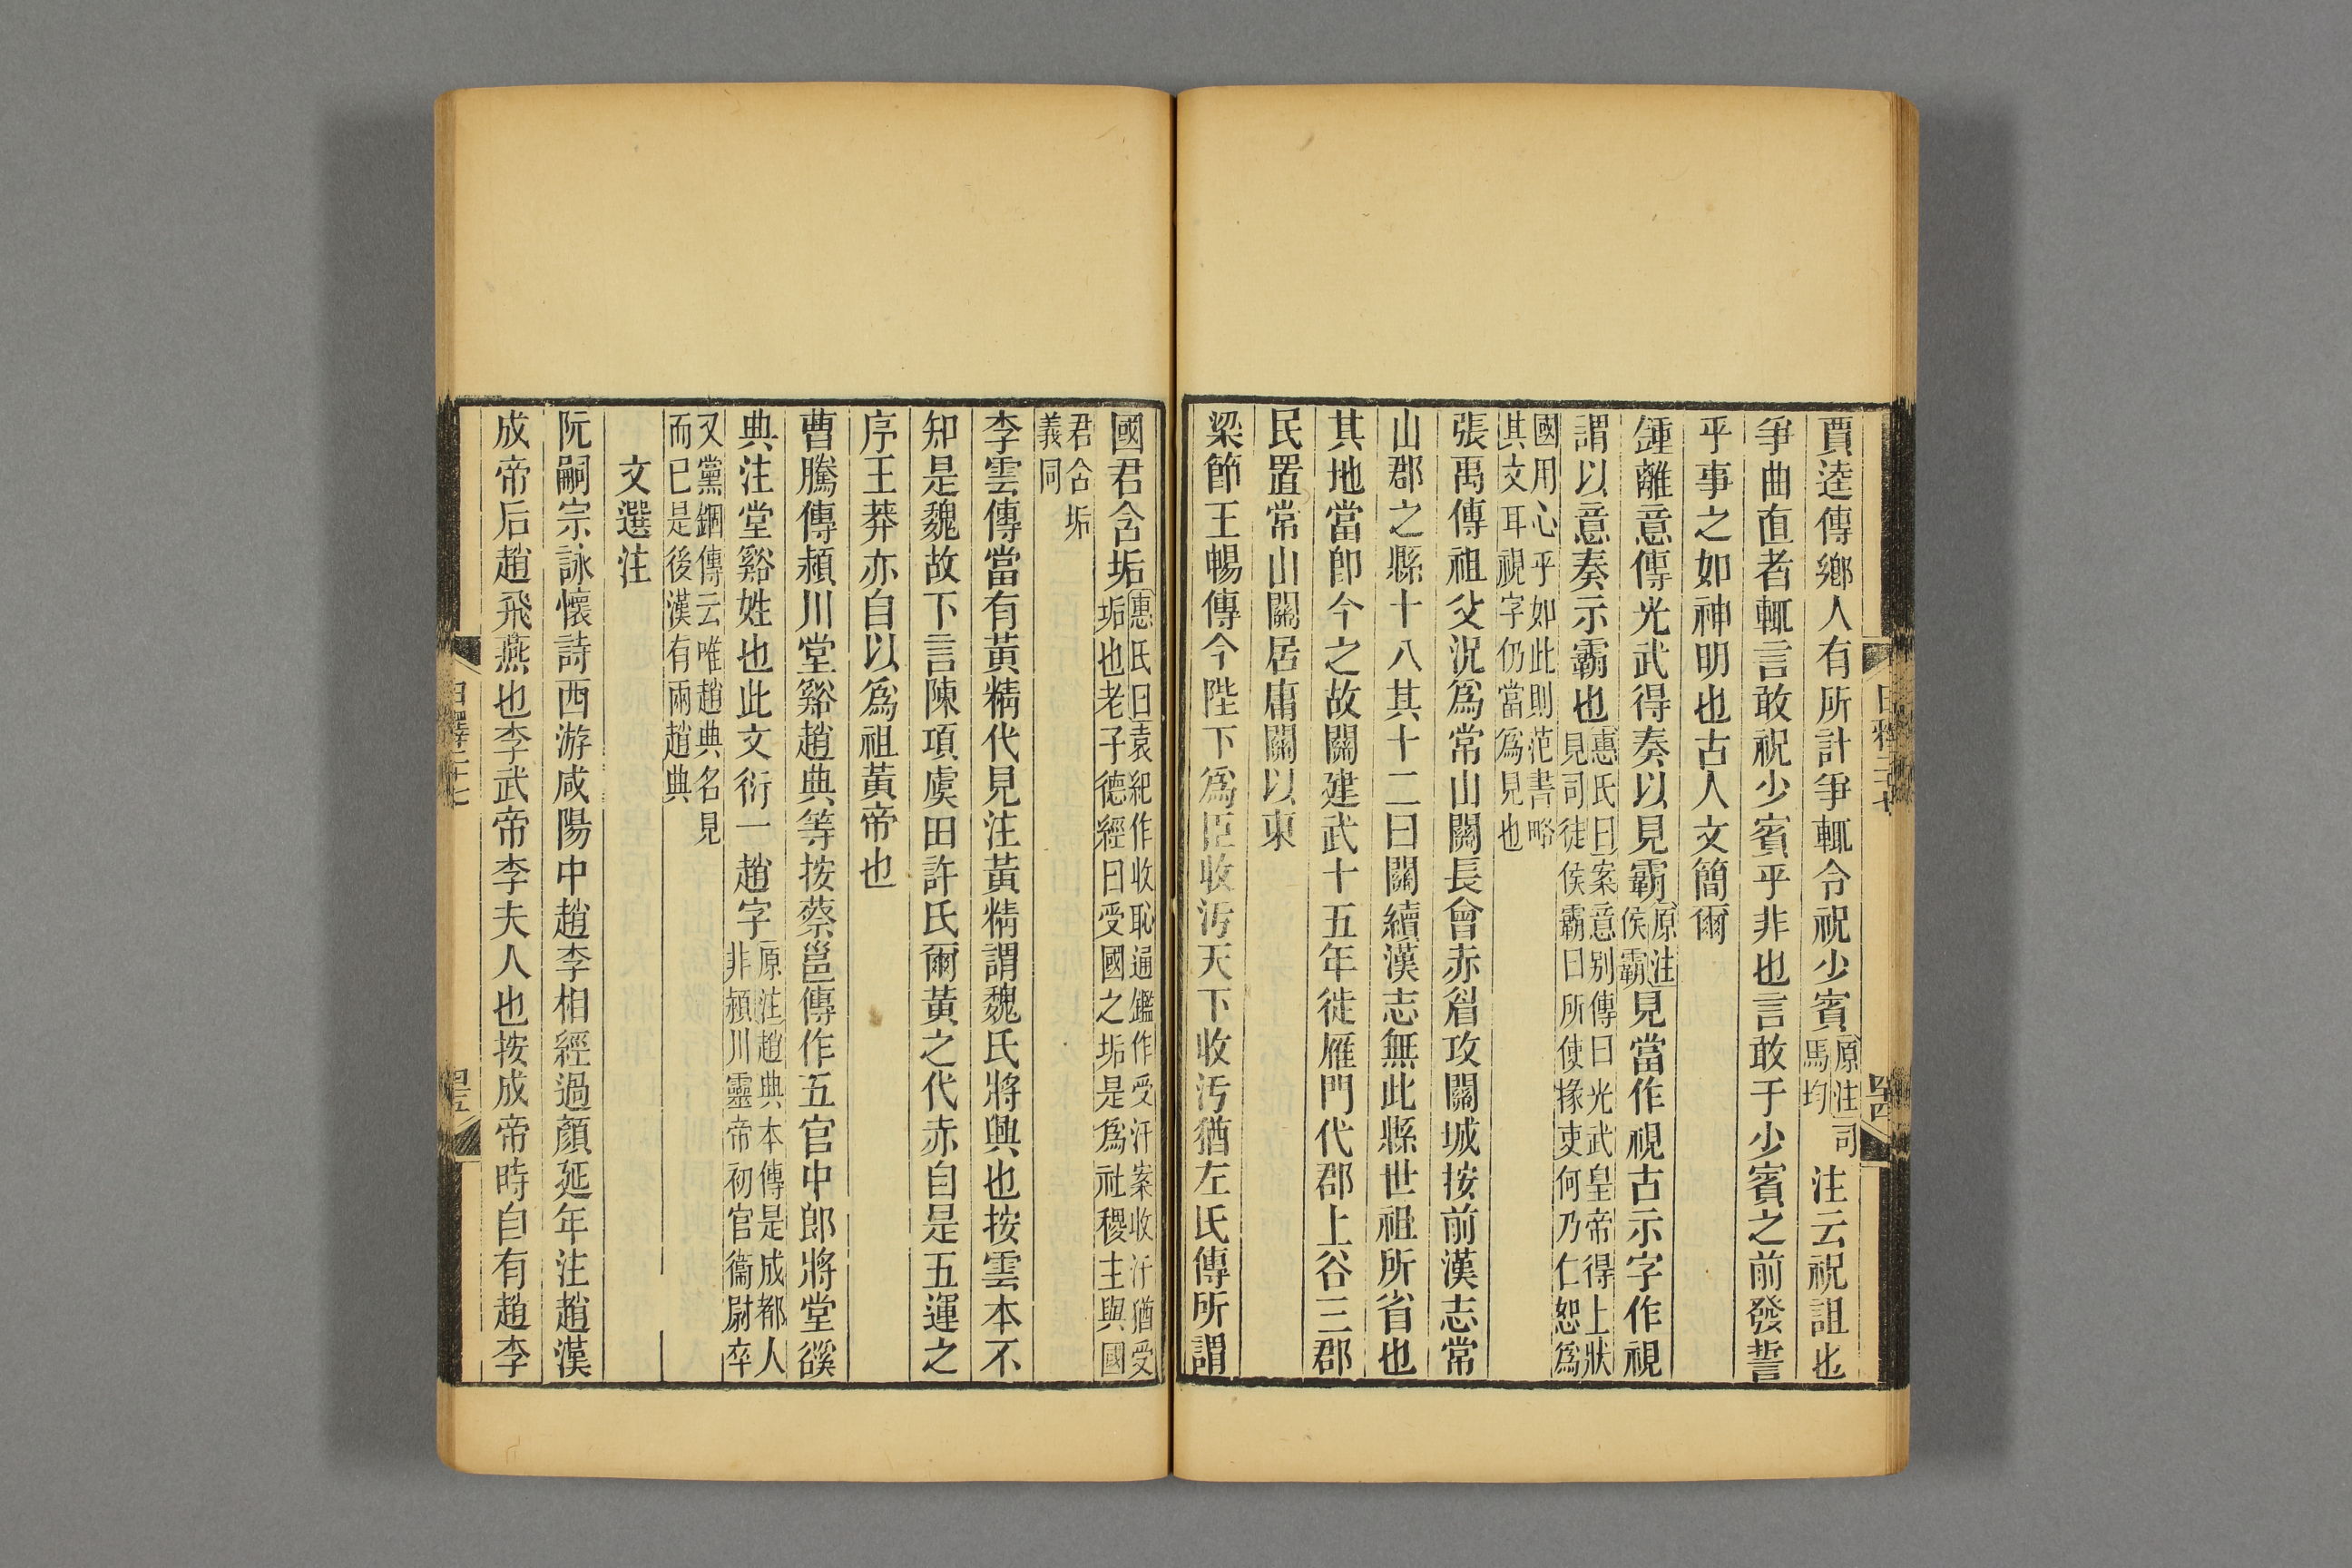 賈逵傳鄉人有所計爭輒令祝少賓原注司馬均注云祝詛也
爭曲直者輒言敢祝少賓乎非也言敢于少賓之前發誓
乎事之如神明也古人文簡爾
鍾離意傳光武得奏以見霸原注侯霸見當作視古示字作視
謂以意奏示霸也惠氏曰案意别傳曰光武皇帝得上狀見司徒侯霸曰所使掾吏何乃仁恕爲
國用心乎如此則范書略其文耳視字仍當爲見也
張禹傳祖父況爲常山關長會赤眉攻關城按前漢志常
山郡之縣十八其十二曰關續漢志無此縣世祖所省也
其地當卽今之故關建武十五年徙雁門代郡上谷三郡
民置常山關居庸關以東
梁節王暢傳今陛下爲臣收汚天下收汚猶左氏傳所謂
國君含垢惠氏曰袁紀作收恥通鑑作受汙案收汙猶受垢也老子德經曰受國之垢是爲社稷主與國
君含垢義同
李雲傳當有黃精代見注黃精謂魏氏將興也按雲本不
知是魏故下言陳項虞田許氏爾黃之代赤自是五運之
序王莽亦自以爲祖黃帝也
曹騰傳潁川堂谿趙典等按蔡邕傳作五官中郎將堂谿
典注堂谿姓也此文衍一趙字原注趙典本傳是成都人非潁川靈帝初官衞尉卒
又黨錮傳云唯趙典名見而已是後漢有兩趙典
文選注
阮嗣宗詠懷詩西游咸陽中趙李相經過顏延年注趙漢
成帝后趙飛燕也李武帝李夫人也按成帝時自有趙李